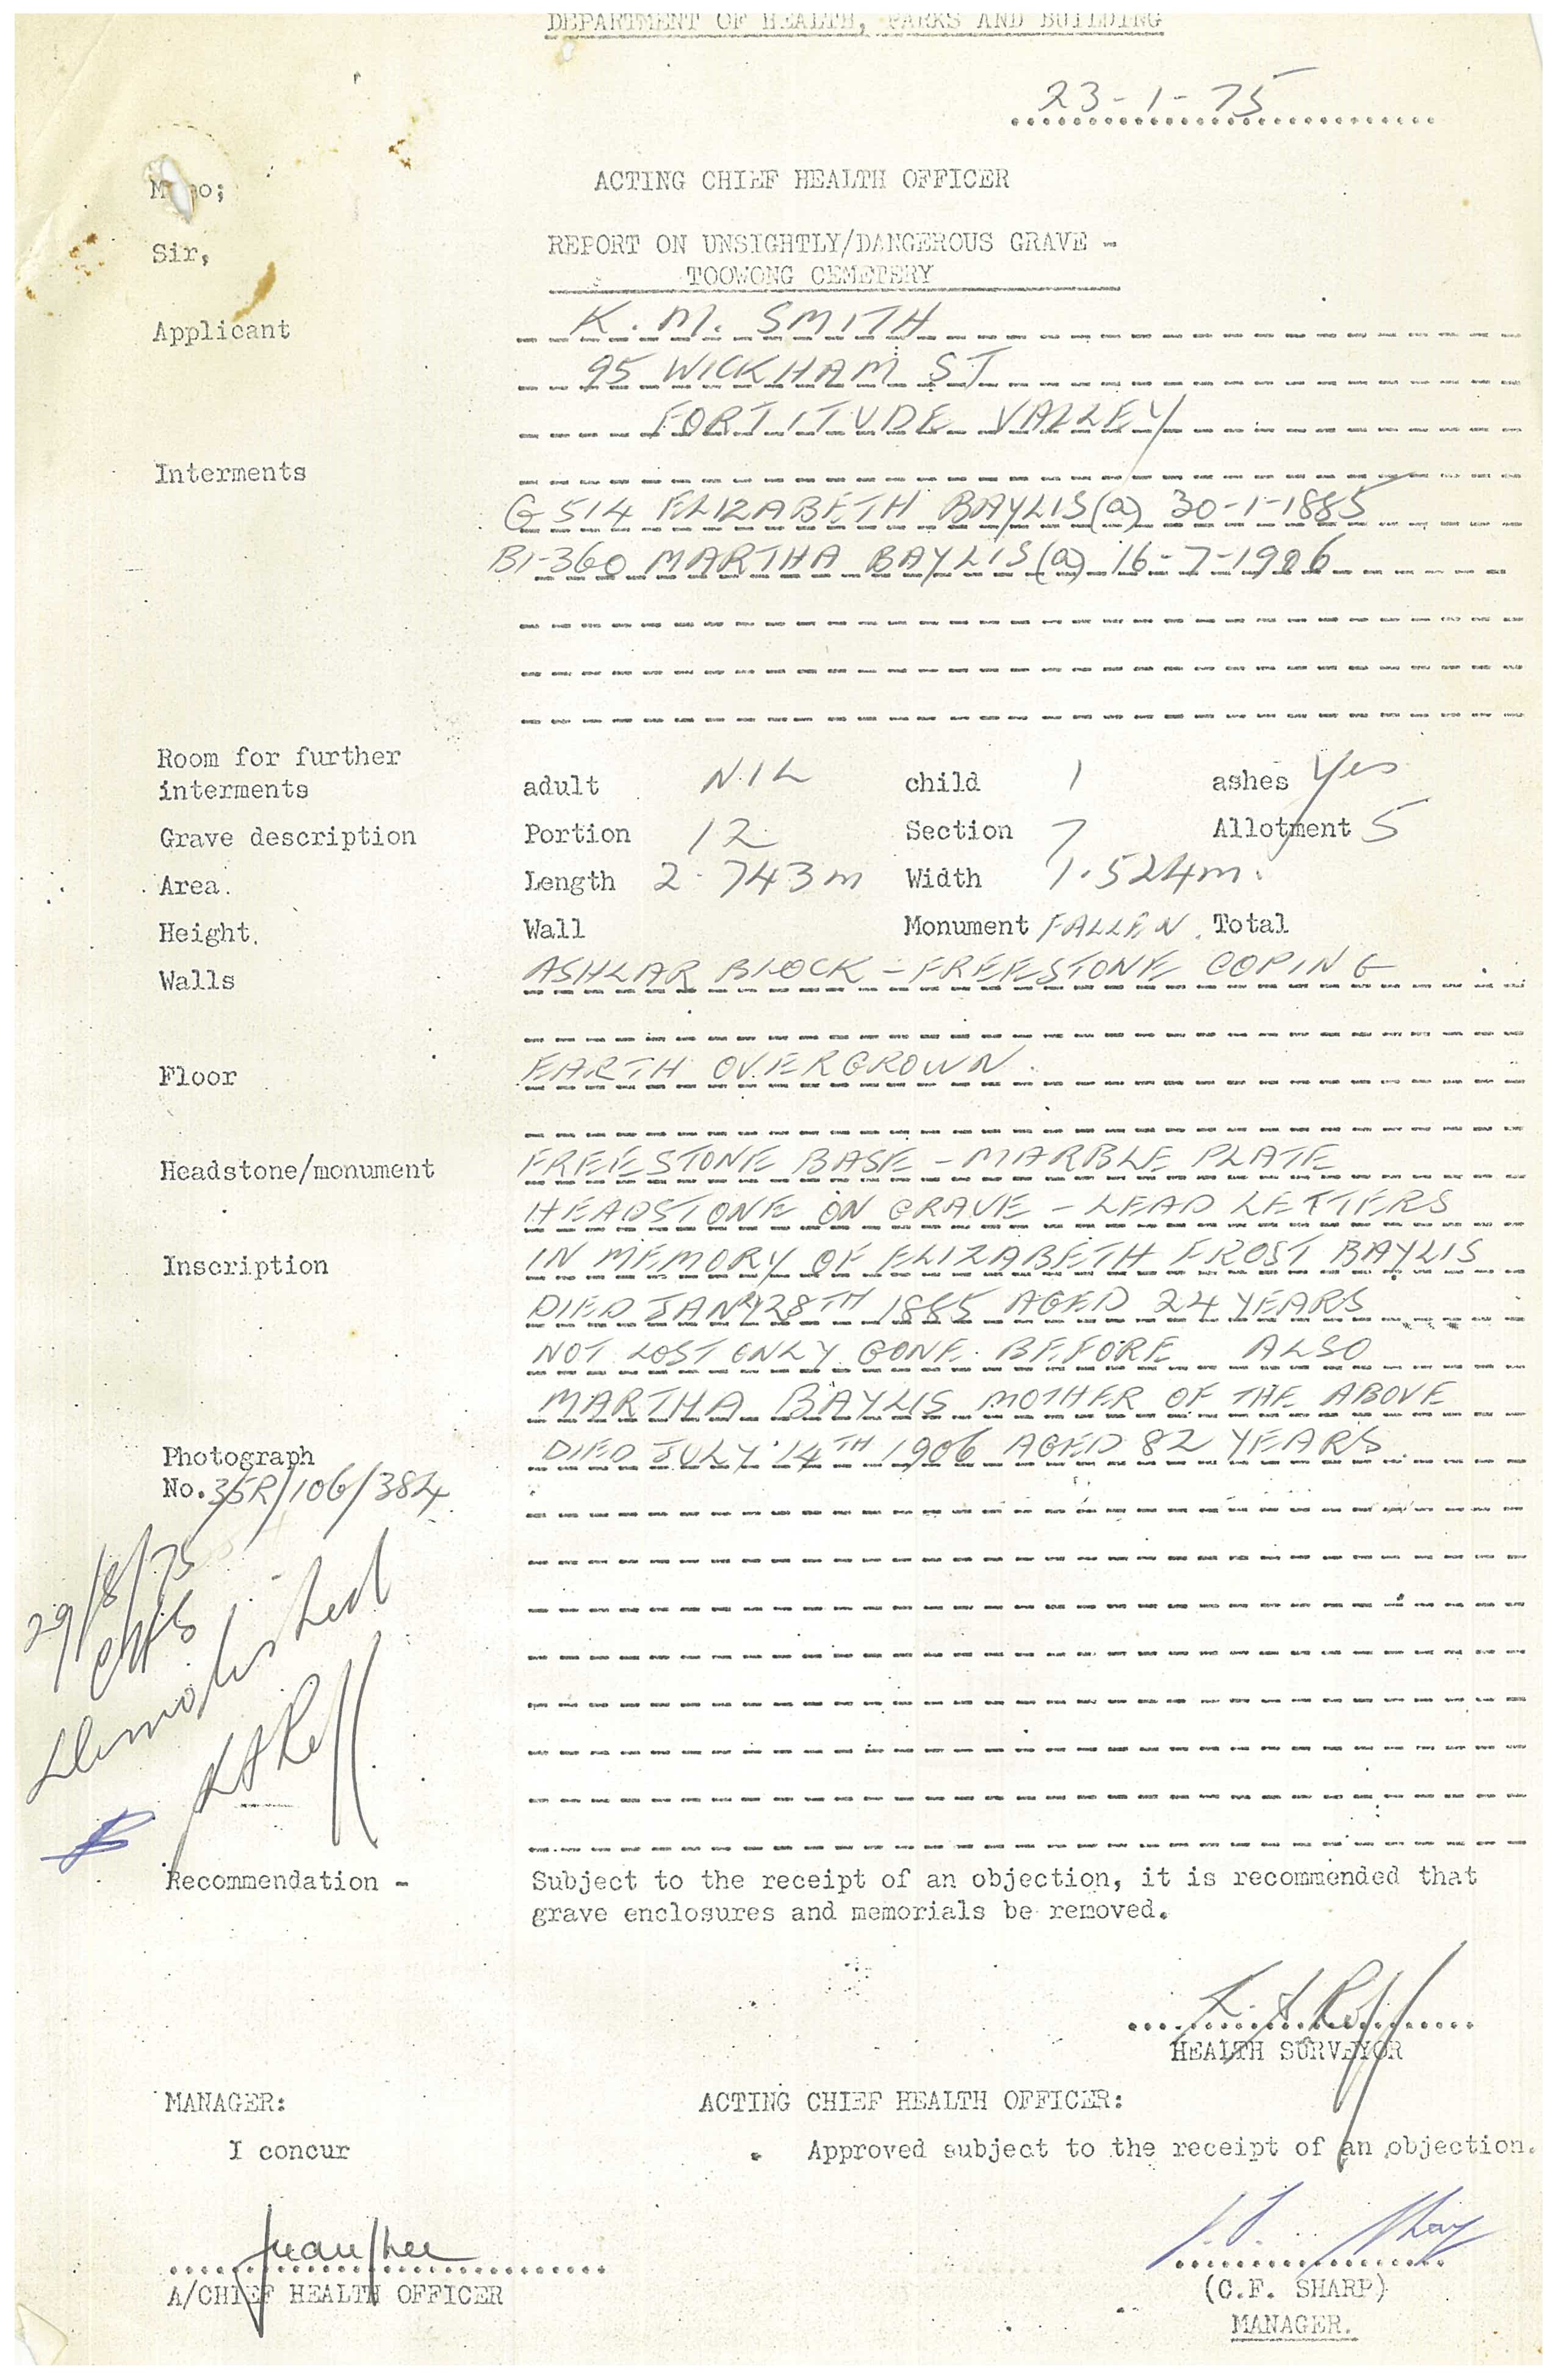 DEPARTMENT OF HEALTH, PARKS AND BUILDING
23-1-75
ACTING CHIEF HEALTH OFFICER
Sir,
REPORT ON UNSIGHTLY/DANGEROUS GRAVE -
TOOWONG CEMETERY
Applicant K. M. SMITH
95 WICKHAM ST
FORTITUDE VALLEY
Interments
G 514 ELIZABETH BAYLIS (a) 30-1-1885
B1-360 MARTHA BAYLIS (a) 16-7-1906
Room for further
interments adult NIL child 1 ashes Yes
Grave description Portion 12 Section 7 Allotment 5
Area. Length 2.743m Width 1.524m.
Height. Wall Monument FALLEN. Total
Walls ASHLAR BLOCK - FREESTONE COPING
Floor EARTH OVERGROWN.
Headstone/monument FREESTONE BASE - MARBLE PLATE
HEADSTONE ON GRAVE - LEAD LETTERS
Inscription IN MEMORY OF ELIZABETH FROST BAYLIS
DIED JANRY 28TH 1885 AGED 24 YEARS
NOT LOST ONLY GONE BEFORE ALSO
MARTHA BAYLIS MOTHER OF THE ABOVE
Photograph DIED JULY 14TH 1906 AGED 82 YEARS.
No. 35R/106/384
29/8/75
demolished
Recommendation - Subject to the receipt of an objection, it is recommended that
grave enclosures and memorials be removed.
HEALTH SURVEYOR
MANAGER: ACTING CHIEF HEALTH OFFICER:
I concur Approved subject to the receipt of an objection.
A/CHIEF HEALTH OFFICER (C.F. SHARP)
MANAGER.